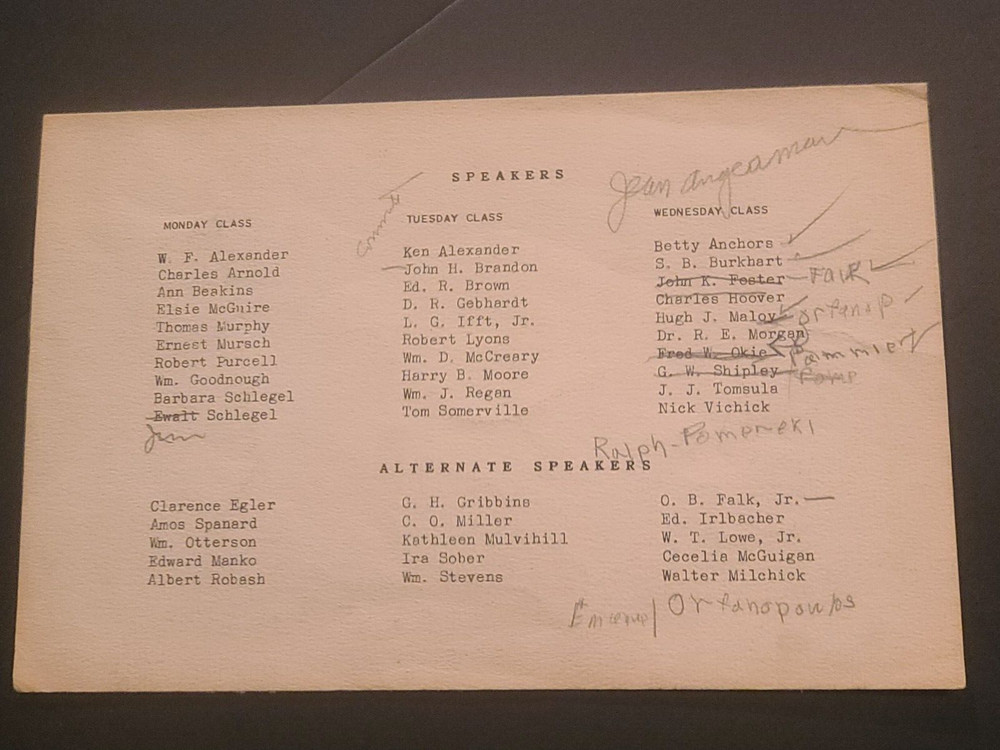 SPEAKERS
Jean
MONDAY CLASS
W. F. Alexander
Charles Arnold
Ann Beakins
Elsie McGuire
Thomas Murphy
Ernest Mursch
Robert Purcell
Wm. Goodnough
Barbara Schlegel
Ewalt Schlegel
TUESDAY CLASS
Ken Alexander
John H. Brandon
Ed. R. Brown
D. R. Gebhardt
L. G. Ifft, Jr.
Robert Lyons
Wm. D. McCreary
Harry B. Moore
Wm. J. Regan
Tom Somerville
WEDNESDAY CLASS
Betty Anchors
S. B. Burkhart
John K. Foster Falk
Charles Hoover
Hugh J. Maloy
Dr. R. E. Morgan
Fred W. Okie
G. W. Shipley
J. J. Tomsula
Nick Vichick
Ralph
ALTERNATE SPEAKERS
Clarence Egler
Amos Spanard
Wm. Otterson
Edward Manko
Albert Robash
G. H. Gribbins
C. O. Miller
Kathleen Mulvihill
Ira Sober
Wm. Stevens
O. B. Falk, Jr.
Ed. Irlbacher
W. T. Lowe, Jr.
Cecelia McGuigan
Walter Milchick